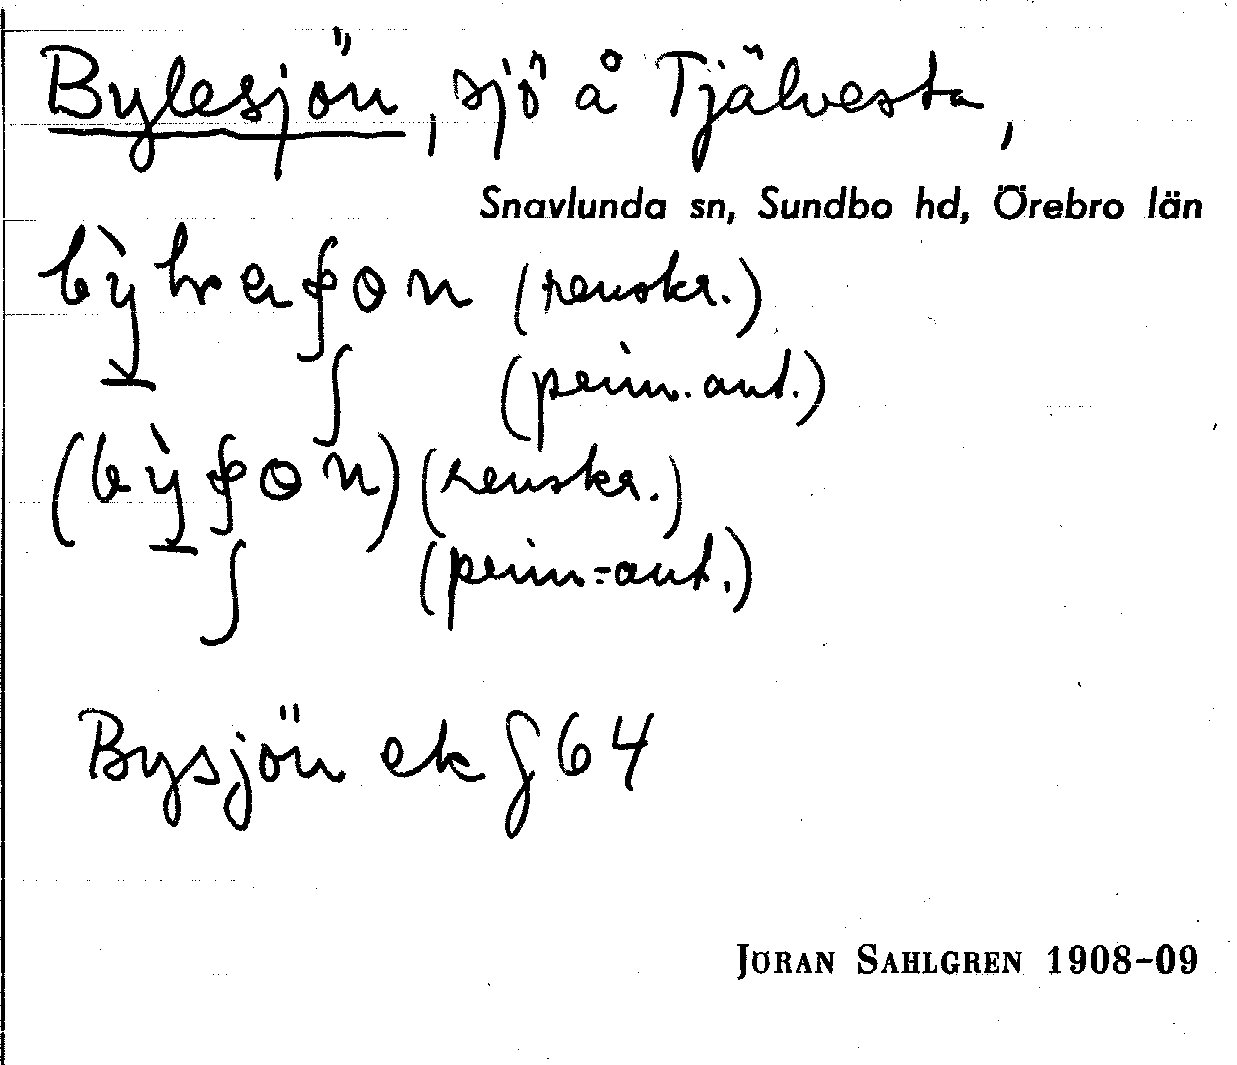 Bylesjön, sjö å Tjälvesta,
Snavlunda sn, Sundbo hd, Örebro län
(renskr.)
ʃ (prim.ant.)
(renskr.)
ʃ (prim.-ant.)
Bysjön ek § 64
JÖRAN SAHLGREN 1908-09